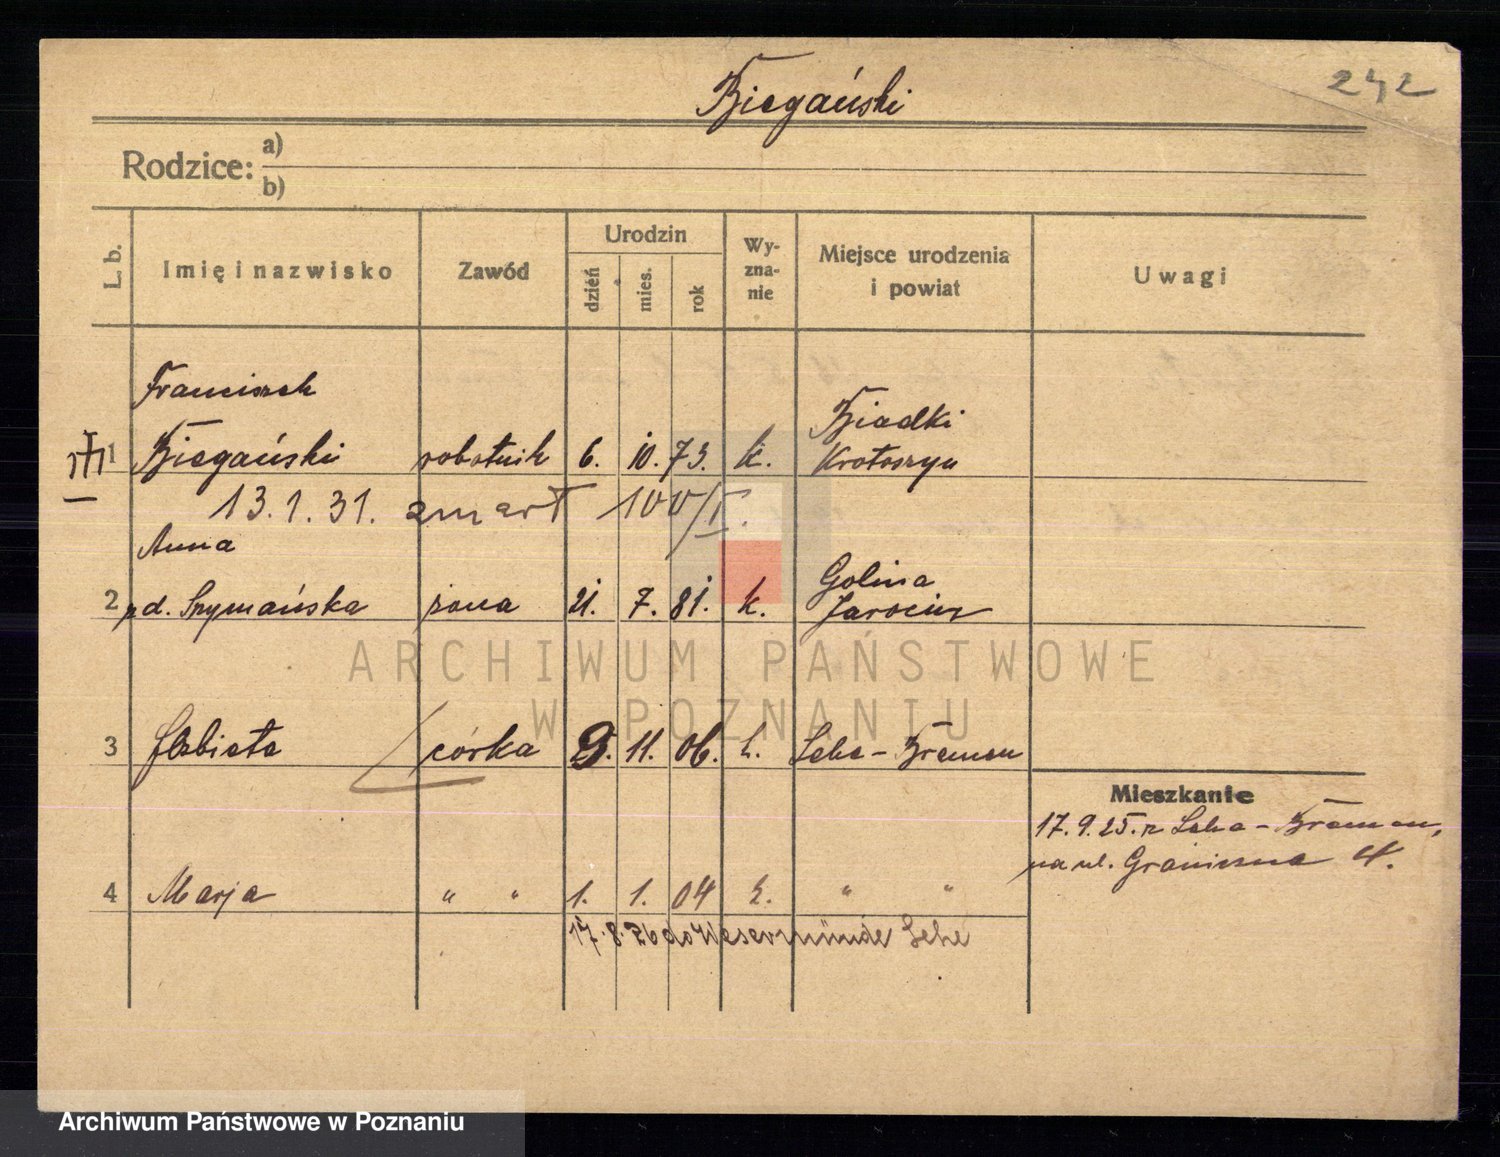 242
Biegański
Rodzice:
a)
b)
L. b.
Imię i nazwisko
Zawód
Urodzin
dzień
mies.
rok
Wy-
zna-
nie
Miejsce urodzenia
i powiat
Uwagi
Franciszek
1 Biegański robotnik 6. 10. 73. k. Biadki
Krotoszyn
13.1.31. zmarł 100/I.
Anna
2 zd. Szymańska żona 21. 7. 81. k. Golina
Jarocin
ARCHIWUM PAŃSTWOWE
W POZNANIU
3 Elżbieta córka 9. 11. 06. k. Lehe-Bremen
Mieszkanie
17.9.25. z Lehe-Bremen,
na ul. Graniczna 4.
4 Marja " " 1. 1. 04 k. " "
17.8.26 do Wesermünde Lehe
Archiwum Państwowe w Poznaniu